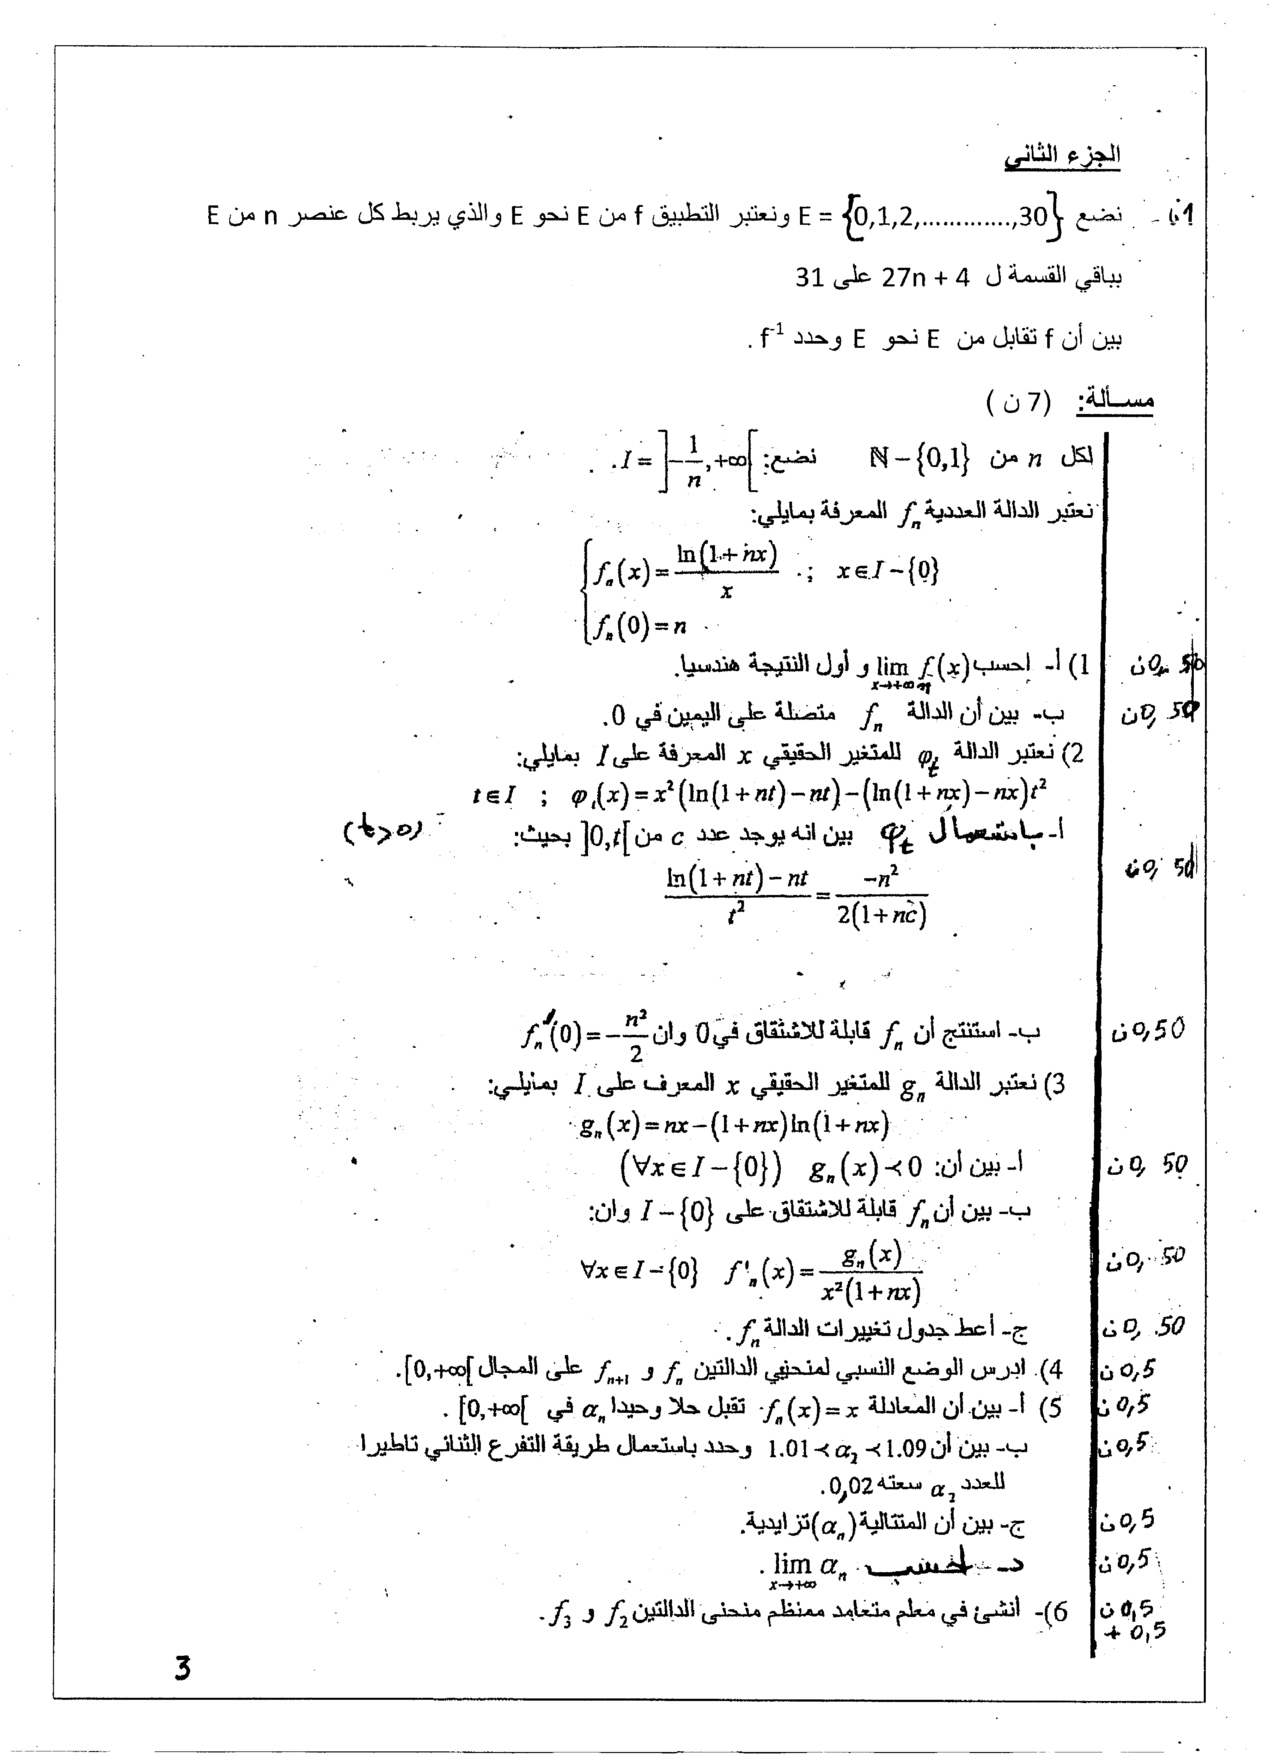 الجزء الثاني
1ن - نضع E = {0,1,2,.............,30} ونعتبر التطبيق f من E نحو E والذي يربط كل عنصر n من E
بباقي القسمة ل 27n + 4 على 31
بين أن f تقابل من E نحو E وحدد f⁻¹ .
مسألة: (7 ن )
لكل n من ℕ−{0,1} نضع: I = ]−1/n ,+∞[ .
نعتبر الدالة العددية fₙ المعرفة بمايلي:
fₙ(x) = ln(1+nx)/x ; x∈I−{0}
fₙ(0) = n
0,50ن 1) أ- احسب lim fₙ(x) x→+∞ و أول النتيجة هندسيا.
0,50ن ب- بين أن الدالة fₙ متصلة على اليمين في 0.
2) نعتبر الدالة φₜ للمتغير الحقيقي x المعرفة على I بمايلي:
t∈I ; φₜ(x) = x²(ln(1+nt)−nt)−(ln(1+nx)−nx)t²
أ- باستعمال φₜ بين انه يوجد عدد c من ]0,t[ بحيث: (t>0)
0,50ن (ln(1+nt)−nt)/t² = −n²/2(1+nc)
0,50ن ب- استنتج أن fₙ قابلة للاشتقاق في 0 وان fₙ'(0) = −n²/2
3) نعتبر الدالة gₙ للمتغير الحقيقي x المعرف على I بمايلي:
gₙ(x) = nx−(1+nx)ln(1+nx)
0,50ن أ- بين أن: (∀x∈I−{0}) gₙ(x) ≺ 0
ب- بين أن fₙ قابلة للاشتقاق على I−{0} وان:
0,50ن ∀x∈I−{0} f'ₙ(x) = gₙ(x)/x²(1+nx)
0,50ن ج- أعط جدول تغييرات الدالة fₙ.
0,5ن 4). ادرس الوضع النسبي لمنحنيي الدالتين fₙ و fₙ₊₁ على المجال [0,+∞[.
0,5ن 5) أ- بين أن المعادلة fₙ(x)=x تقبل حلا وحيدا αₙ في ]0,+∞[ .
0,5ن ب- بين أن 1.01 ≺ α₂ ≺ 1.09 وحدد باستعمال طريقة التفرع الثنائي تاطيرا
للعدد α₂ سعته 0,02.
0,5ن ج- بين أن المتتالية (αₙ) تزايدية.
0,5ن د- احسب lim αₙ x→+∞ .
0,5ن + 0,5 6)- أنشئ في معلم متعامد ممنظم منحنى الدالتين f₂ و f₃ .
3